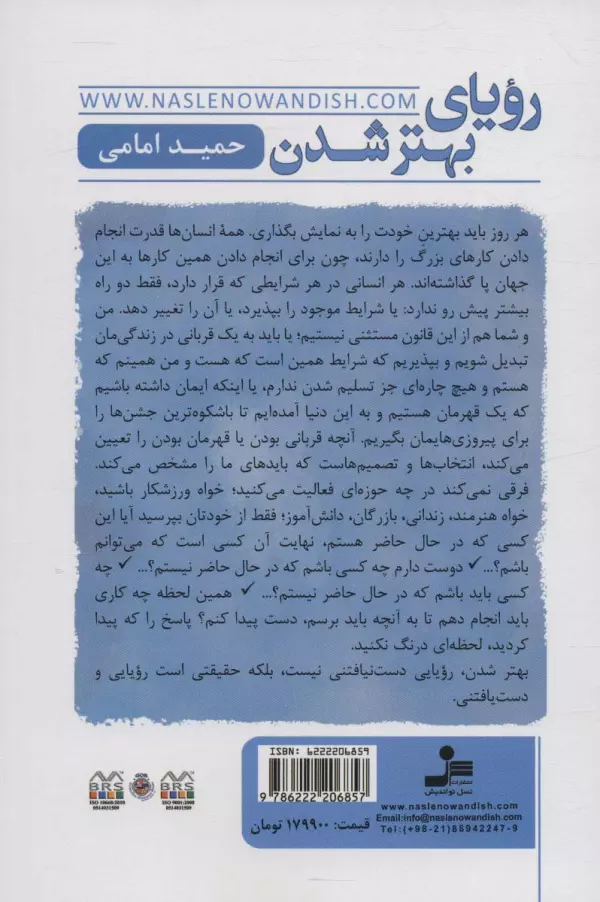 رؤیای
بهتر شدن
WWW.NASLENOWANDISH.COM
حمید امامی
هر روز باید بهترین خودت را به نمایش بگذاری. همهٔ انسان‌ها قدرت انجام
دادن کارهای بزرگ را دارند، چون برای انجام دادن همین کارها به این
جهان پا گذاشته‌اند. هر انسانی در هر شرایطی که قرار دارد، فقط دو راه
بیشتر پیش رو ندارد: یا شرایط موجود را بپذیرد، یا آن را تغییر دهد. من
و شما هم از این قانون مستثنی نیستیم؛ یا باید به یک قربانی در زندگی‌مان
تبدیل شویم و بپذیریم که شرایط همین است که هست و من همینم که
هستم و هیچ چاره‌ای جز تسلیم شدن ندارم، یا اینکه ایمان داشته باشیم
که یک قهرمان هستیم و به این دنیا آمده‌ایم تا باشکوه‌ترین جشن‌ها را
برای پیروزی‌هایمان بگیریم. آنچه قربانی بودن یا قهرمان بودن را تعیین
می‌کند، انتخاب‌ها و تصمیم‌هاست که بایدهای ما را مشخص می‌کند.
فرقی نمی‌کند در چه حوزه‌ای فعالیت می‌کنید؛ خواه ورزشکار باشید،
خواه هنرمند، زندانی، بازرگان، دانش‌آموز؛ فقط از خودتان بپرسید آیا این
کسی که در حال حاضر هستم، نهایت آن کسی است که می‌توانم
باشم؟... ✓ دوست دارم چه کسی باشم که در حال حاضر نیستم؟... ✓ چه
کسی باید باشم که در حال حاضر نیستم؟... ✓ همین لحظه چه کاری
باید انجام دهم تا به آنچه باید برسم، دست پیدا کنم؟ پاسخ را که پیدا
کردید، لحظه‌ای درنگ نکنید.
بهتر شدن، رؤیایی دست‌نیافتنی نیست، بلکه حقیقتی است رؤیایی و
دست‌یافتنی.
انتشارات
نسل نواندیش
www.naslenowandish.com
Email:info@naslenowandish.com
Tel:(+98-21)88942247-9
ISBN: 6222206859
9 786222 206857
قیمت: ۱۷۹۹۰۰ تومان
BRS
BRS